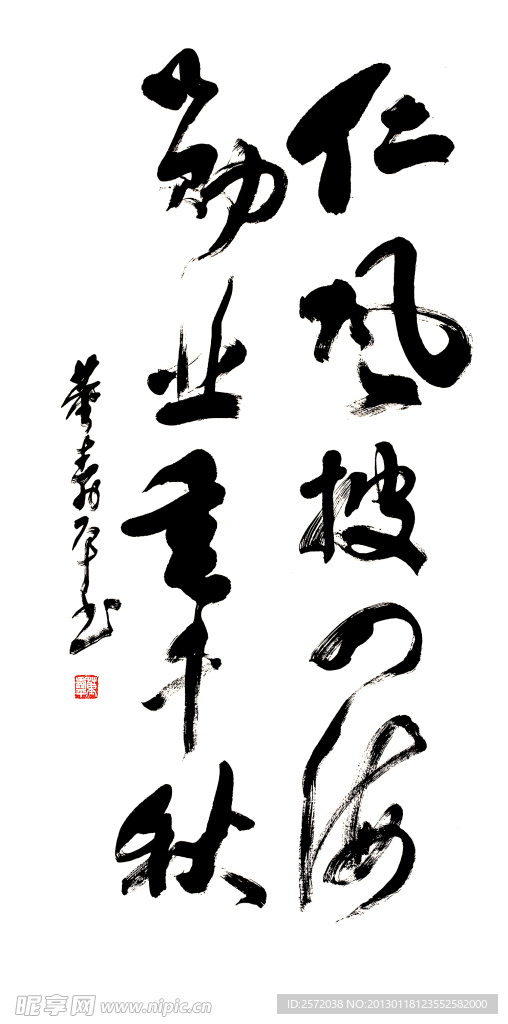 仁风披四海
勋业重千秋
董寿平书
昵享网 www.nipic.cn
ID:2572038 NO:20130118123552582000